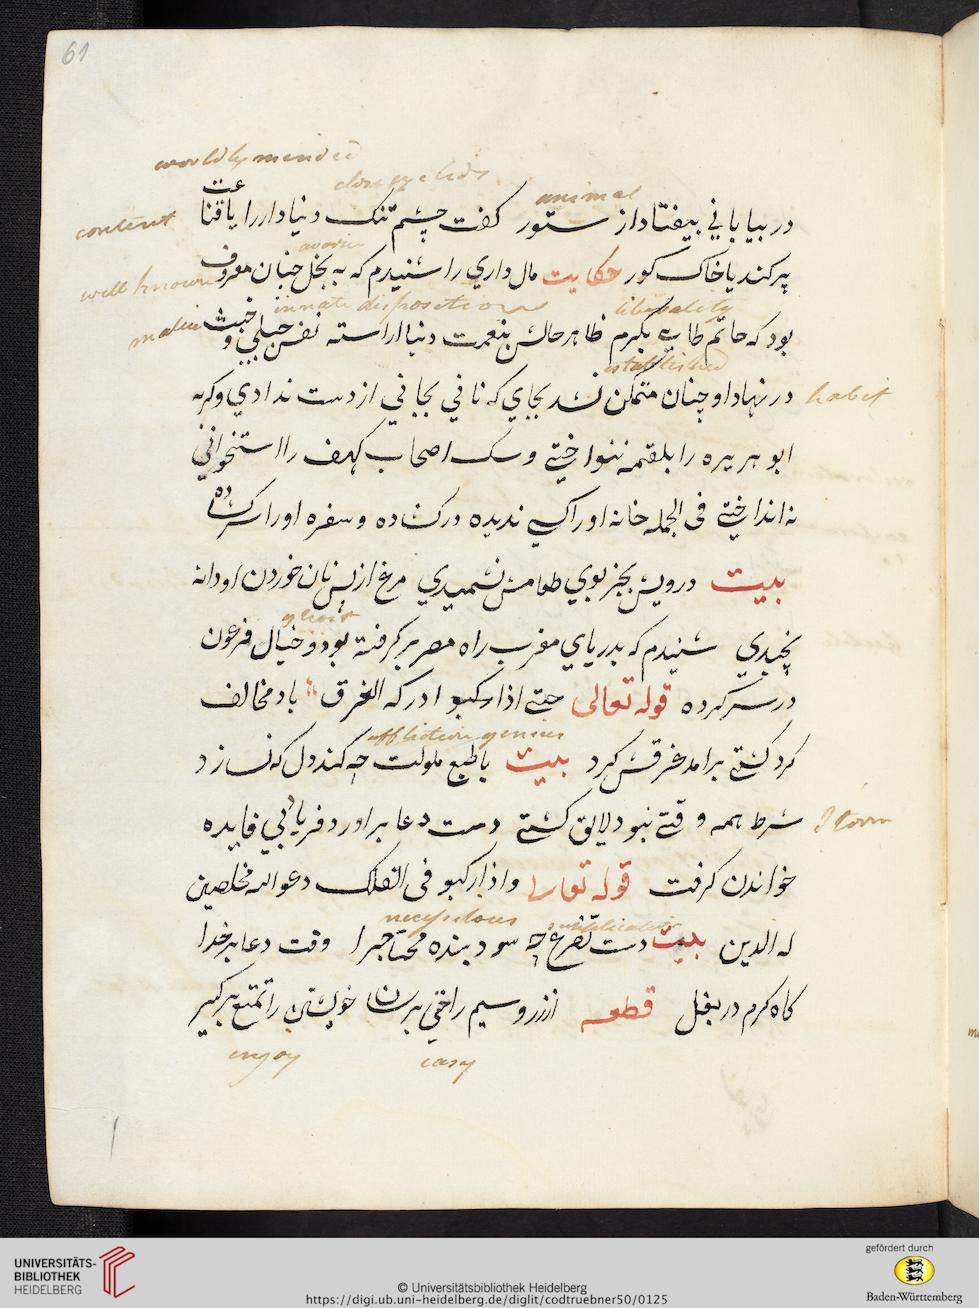 61
worldly minded
close eye lids
animal
content
در بیابانی بیفتاد از ستور گفت چشم تنک دنیاداررا یا قناعت
avarice
پر کند یا خاک کور حکایت مال داری را شنیدم که به بخل چنان معروف
well known
innate disposition
liberality
malice
بود که حاتم طایی بکرم ظاهر حالش بنعمت دنیا اراسته و خبث نفس جبلی
established
در نهاد او چنان متمکن شد بجای که نانی بجانی از دست ندادی و کربه
habit
ابو هریره را بلقمه ننواختی و سک اصحاب کهف را استخوانی
نه انداختی فی الجمله خانه اورا کسی ندیده در کشاده و سفره اورا سر کشاده
بیت درویش بجز بوی طعامش نشمیدی مرغ از پس نان خوردن او دانه
نچیدی شنیدم که بدریای مغرب راه مصر بر کرفته بود و خیال فرعون
در سر کرده قوله تعالی حتی اذا ادرکه الغرق باد مخالف
affliction
genius
کرد کشتی برامد غرقش کرد بیت با طبع ملولت چه کند دل که نسازد
شرط همه وقتی نبود لایق کشتی دست دعا براورد و فریاد بی فایده
خواندن کرفت قوله تعالی واذا رکبو فی الفلک دعوالله مخلصین
necessitous
supplication
له الدین بیت دست تضرع چه سود بنده محتاجرا وقت دعا بر خدا
کاه کرم در بغل قطعه از زر و سیم راحتی برسان خویشتن را تمتع بر کیر
enjoy
easy
UNIVERSITÄTS-
BIBLIOTHEK
HEIDELBERG
© Universitätsbibliothek Heidelberg
https://digi.ub.uni-heidelberg.de/diglit/codtruebner50/0125
gefördert durch
Baden-Württemberg